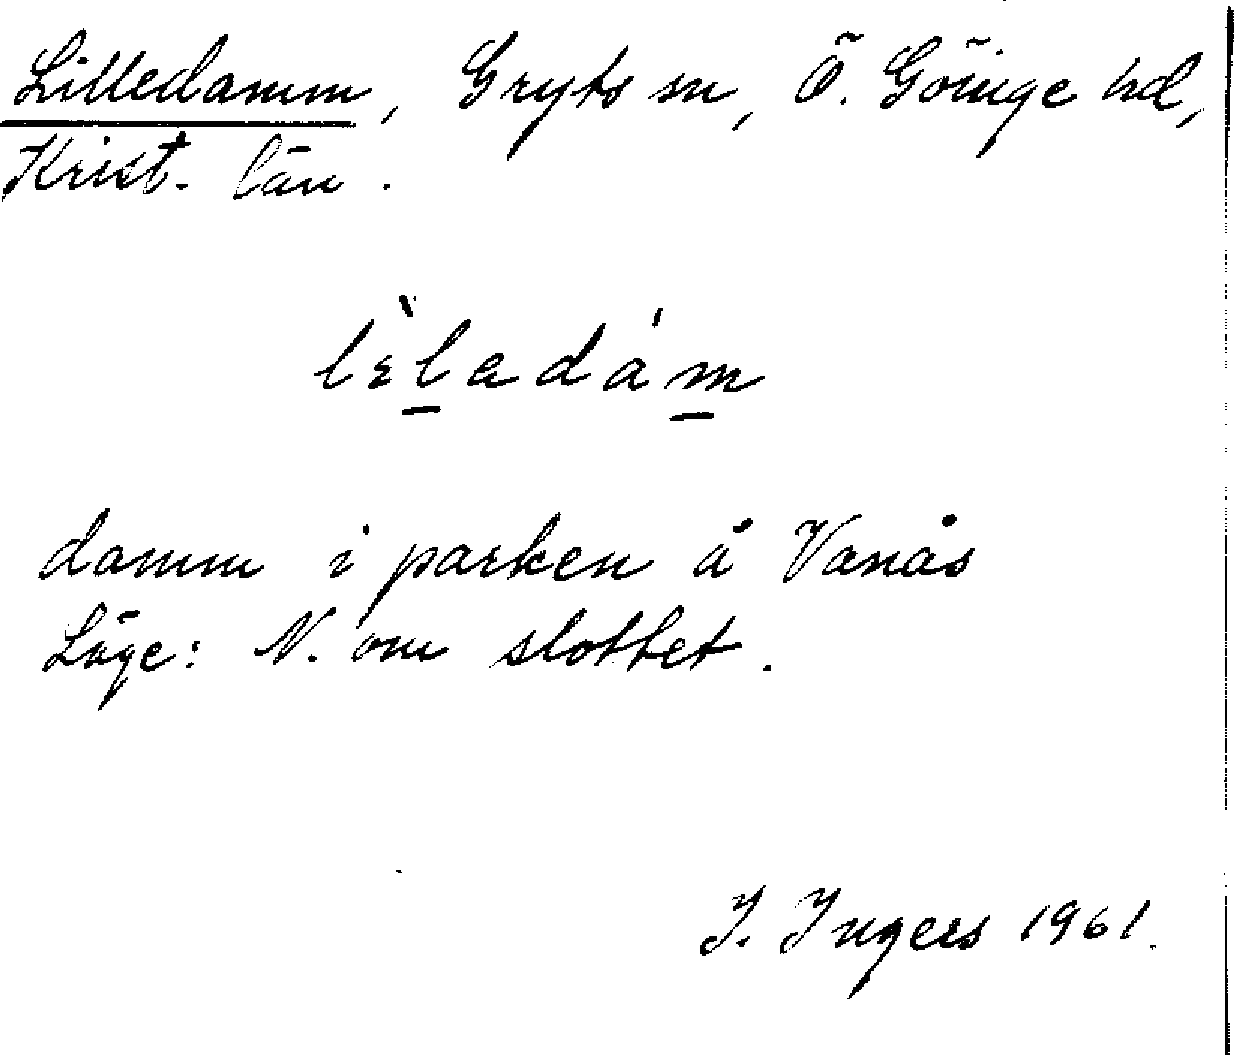 Lilledamm, Gryts sn, Ö. Göinge hd,
Krist. län.
lὲl̲adám̲
damm i parken å Vanås
Läge: N. om slottet.
I. Ingers 1961.